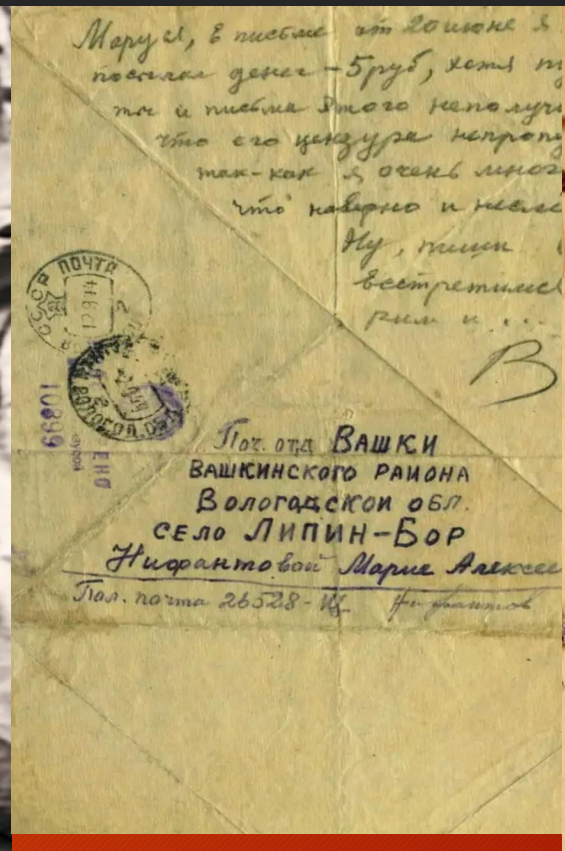 Маруся, в письме от 20 июня я
посылал денег - 5 руб, хотя
ты и письма этого неполучи
что его цензура непропу
так-как я очень мног
что наверно и
Ну, пиши
встретимся
В
СССР ПОЧТА
12 9 44
ВОЛОГОД. ОБЛ
10899
Поч. отд ВАШКИ
ВАШКИНСКОГО РАИОНА
ВОЛОГОДСКОИ ОБЛ.
СЕЛО ЛИПИН-БОР
Нифантовой Марие Алексее
Пол. почта 26528-Ц Нифантов